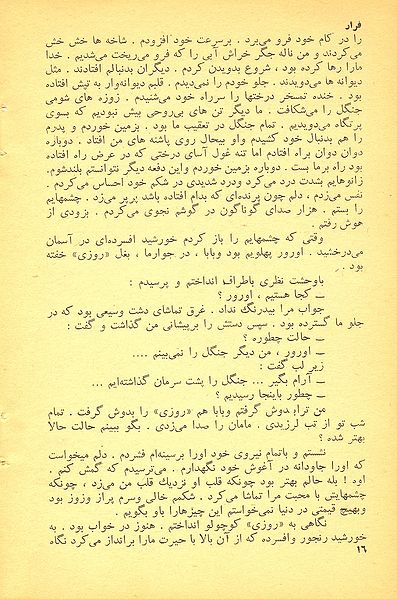 فرار
را در کام خود فرو می‌برد . برسرعت خود افزودم . شاخه ها خش خش
می‌کردند و من ناله جگر خراش آبی را که فرو می‌ریخت می‌شدیم . خدا
مارا رها کرده بود ، شروع بدویدن کردم . دیگران بدنبالم افتادند . مثل
دیوانه ها می‌دویدند . جلو خودم را نمی‌دیدم . قلبم دیوانه‌وار به تپش افتاده
بود . خنده تمسخر درختها را سرراه خود می‌شنیدم . زوزه های شومی
جنگل را می‌شکافت . ما دیگر تن های بی‌روحی بیش نبودیم که بسوی
پرتگاه می‌دویدیم . تمام جنگل در تعقیب ما بود . بزمین خوردم و پدرم
را هم بدنبال خود کشیدم واو بیحال روی پاشنه های من افتاد . دوباره
دوان دوان براه افتادم اما تنه غول آسای درختی که در عرض راه افتاده
بود راه برما بست . دوباره بزمین خوردم واین دفعه دیگر نتوانستم بلندشوم.
زانوهایم بشدت درد می‌کرد ودرد شدیدی در شکم خود احساس می‌کردم .
نفس می‌زدم ، دلم چون پرنده‌ای که بدام افتاده باشد پرپر می‌زد . چشمهایم
را بستم . هزار صدای گوناگون در گوشم نجوی می‌کردم . بزودی از
هوش رفتم .
وقتی که چشمهایم را باز کردم خورشید افسرده‌ای در آسمان
می‌درخشید . اورور پهلویم بود وبابا ، در جوارما ، بغل «روزی» خفته
بود .
باوحشت نظری باطراف انداختم و پرسیدم :
ــ کجا هستیم ، اورور ؟
جواب مرا بیدرنگ نداد . غرق تماشای دشت وسیعی بود که در
جلو ما گسترده بود . سپس دستش را برپیشانی من گذاشت و گفت :
ــ حالت چطوره ؟
ــ اورور ، من دیگر جنگل را نمی‌بینم ....
زیر لب گفت :
ــ آرام بگیر ... جنگل را پشت سرمان گذاشته‌ایم ...
ــ چطور باینجا رسیدیم ؟
من ترا بدوش گرفتم وبابا هم «روزی» را بدوش گرفت . تمام
شب تو از تب لرزیدی . مامان را صدا می‌زدی . بگو ببینم حالت حالا
بهتر شده ؟
نشستم و باتمام نیروی خود اورا برسینه‌ام فشردم . دلم میخواست
که اورا جاودانه در آغوش خود نگهدارم . می‌ترسیدم که گمش کنم .
اوه ! بله حالم بهتر بود چونکه قلب او نزدیك قلب من می‌زد ، چونکه
چشمهایش با محبت مرا تماشا می‌کرد . شکمم خالی وسرم پراز وزوز بود
وبهیچ قیمتی در دنیا نمی‌خواستم این چیزهارا باو بگویم .
نگاهی به «روزی» کوچولو انداختم . هنوز در خواب بود . به
خورشید رنجور وافسرده که از آن بالا با حیرت مارا برانداز می‌کرد نگاه
۱۶